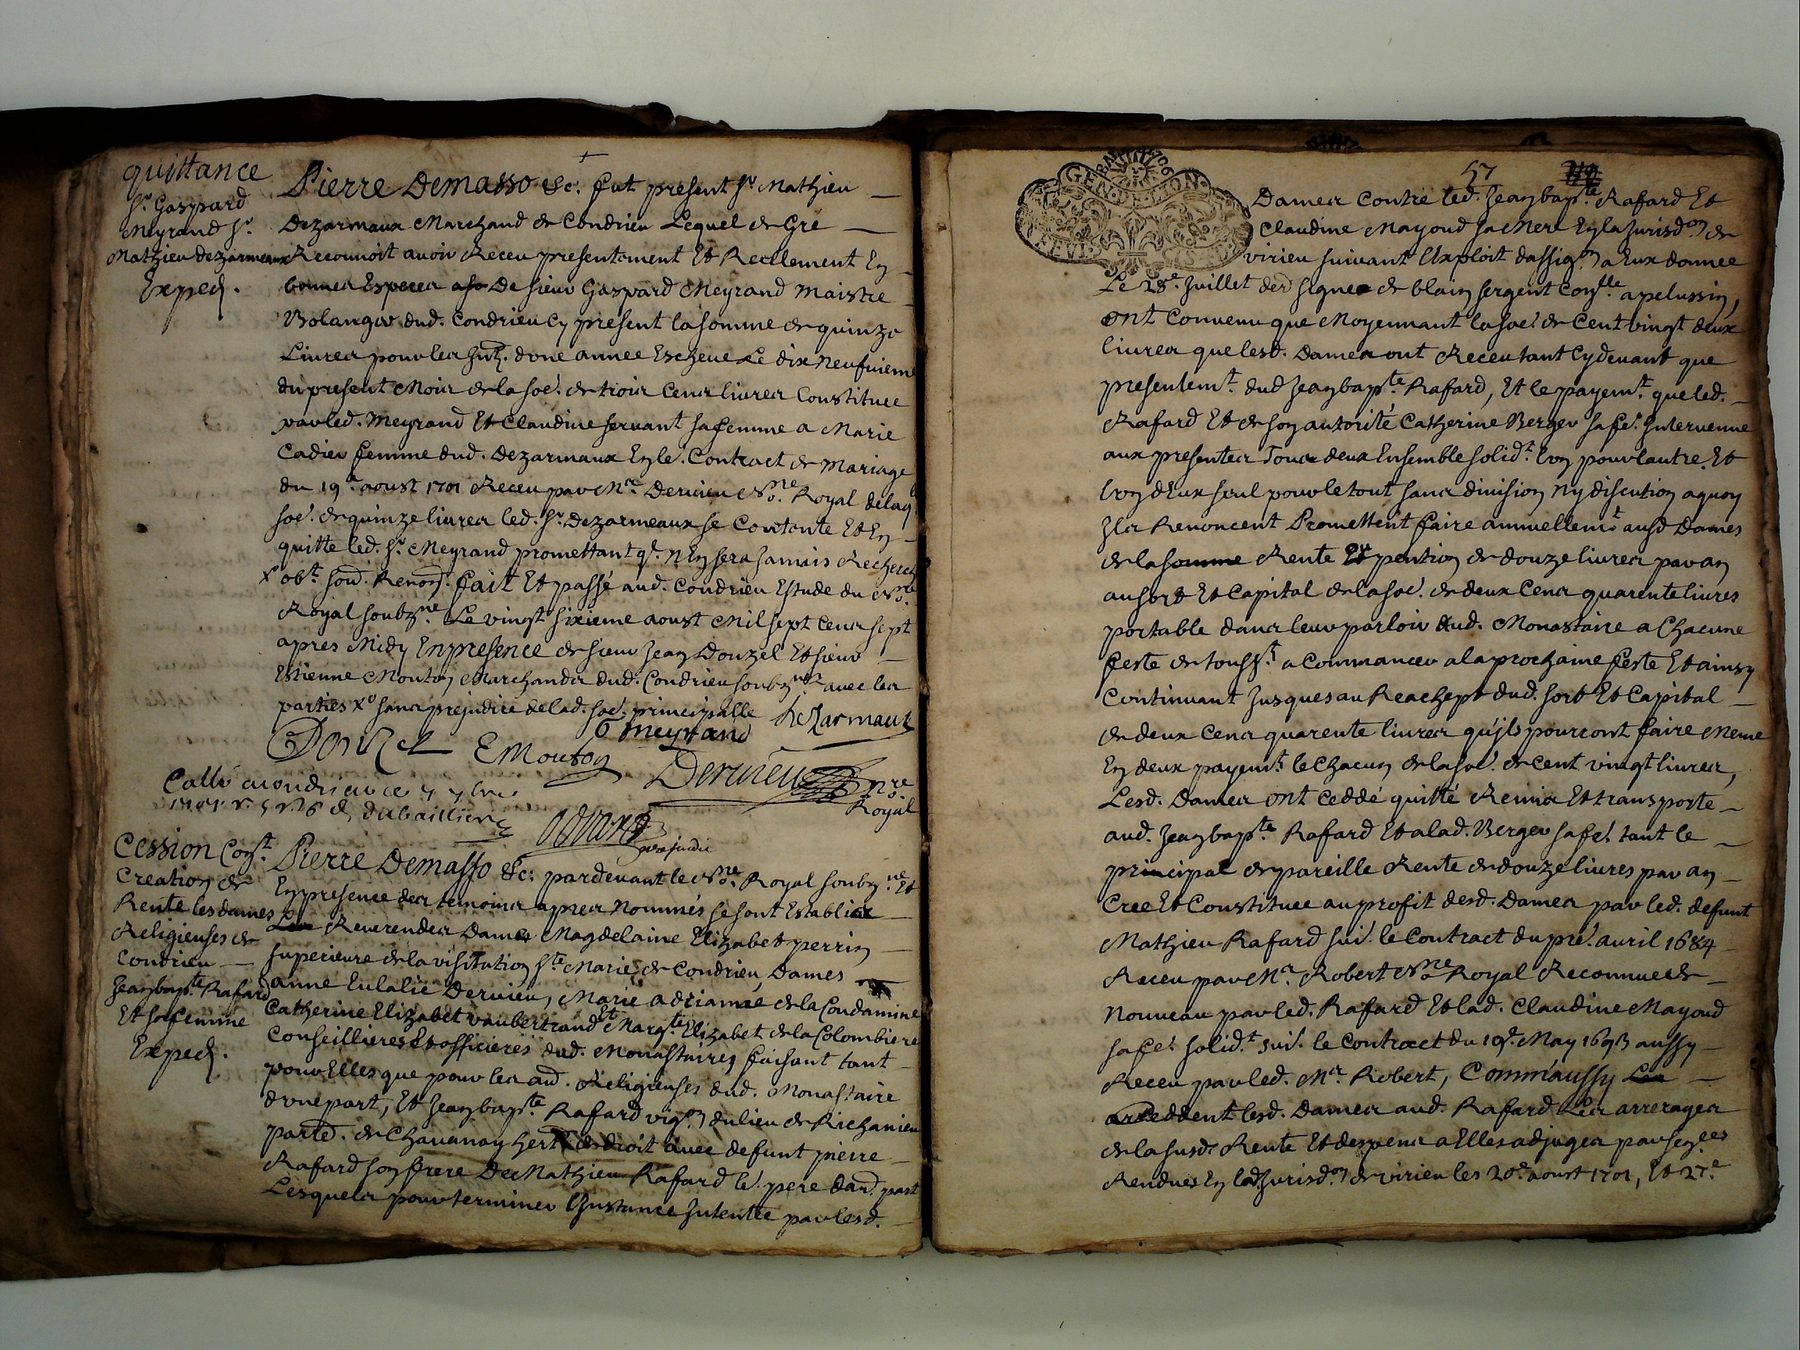 quittance
Sr. Gaspard
Meyrand Sr.
Mathieu dezarmeaux
Exped.
Pierre Demasso &c. fut present Sr. Mathieu
Dezarmaux Marchand de Condrieu Lequel de Gré
Reconnoit avoir Receu presentement Et Reellement En
bonnes Especes De sieur Gaspard Meyrand Maistre
Bolanger dud. Condrieu Cy present la somme de quinze
Livres pour les d'une année Escheue Le dix Neufvieme
du present Mois de la so˜e. de trois Cens livres Constituee
par led. Meyrand Et Claudine servant sa femme a Marie
Cadier femme dud. Dezarmaux En le. Contract de Mariage
du 19e. aoust 1701 Receu par Me. Dervieu Nore. Royal de laq.
so˜e. de quinze livres led. Sr. Dezarmeaux se Contente Et En
quitte led. Sr. Meyrand promettant q. n'En sera Jamais Recherch
x obt. soud. Renon. fait Et passé aud. Condrieu Estude du Nore.
Royal soubzne. Le vingt sixieme aoust Mil sept Cens sept
apres Midy En presence de sieur Jean Donzel Et sieur
Estienne Mouton Marchands dud. Condrieu soubznes avec les
parties x sans prejudice de lad. so˜e. principalle Dezarmaux
Donzel E Mouton G meyrand
Dervieu nre
Royal
Cession Cont.
Creation de
Rente les dames
Religieuses de
Condrieu
Jean bapte. Rafard
Et sa femme
Exped.
Pierre Demasso &c. pardevant le Nore. Royal soubzne. Et
En presence des temoins apres Nommés se sont Establies
Reverendes Dames Magdelaine Elizabet perrin
superieure de la visitation Ste. Marie de Condrieu, Dames
anne Eulalie Dervieu, Marie de la Condamine
Catherine Elizabet vaubertrand Et Margte. Elizabet de la Colombiere
Conseillieres Et officieres dud. Monastaires faisant tant
pour Elles que pour les au˜. Religieuses dud. Monastaire
d'vne part, Et Jean bapte. Rafard vig.on du lieu de Richanieu
par˜. de Chavanay de droit avec defunt pierre
Rafard son frere De Mathieu Rafard le. pere d'au˜. part
Lesquels pour terminer l'Instance Intentée par lesd.
57
GENERALITE LYON
Dames Contre led. Jean bapte. Rafard Et
Claudine Mayoud sa Mere En la Jurisd.on de
virieu suivant l'Exploit d'assig.on a Eux donnee
Le 28e. Juillet der signe de blain sergent a pelussin,
ont Convenu que Moyennant la so˜e. de Cent vingt deux
livres que lesd. Dames ont Receu tant Cy devant que
presentemt. dud Jean bapte. Rafard, Et le payemt. que led.
Rafard Et de son autorité Catherine Berger sa fe˜. Intervenue
aux presentes Tous deux Ensemble solidt. l'vn pour l'autre, Et
l'vn d'Eux seul pour le tout sans division Ny discution a quoy
Ils Renoncent Promettent faire annuellemt. ausd Dames
de la somme Rente Et pention de douze livres par an
au sort Et Capital de la so˜e. de deux Cens quarente livres
portable dans leur parloir dud. Monastaire a Chacune
feste de toussts. a Commancer a la prochaine feste Et ainsy
Continuant Jusques au Reachept dud. sort Et Capital
de deux Cens quarente livres qu'ils pourront faire Meme
En deux payemts. le Chacun de la so˜e. de cent vingt livres,
Lesd. Dames ont Ceddé quitté Remis Et transporté
aud. Jean bapte. Rafard Et a lad. Berger sa fe˜. tant le
principal de pareille Rente de douze livres par an
Créé Et Constituée au profit desd. Dames par led. defunt
Mathieu Rafard suiv. le Contract du pre˜. avril 1684
Receu par Me. Robert Nore. Royal Reconnue de
Nouveau par led. Rafard Et lad. Claudine Mayoud
sa fe˜. solidt. suiv. le Contract du 19e. May 1693 aussy
Receu par led. Me. Robert, Comm'aussy
Ceddent lesd. Dames aud. Rafard Les arrerages
de la susd. Rente Et despens a Elles adjuges par sences
Rendues En lad Jurisd.on de virieu les 20e. aoust 1701, Et 27e.